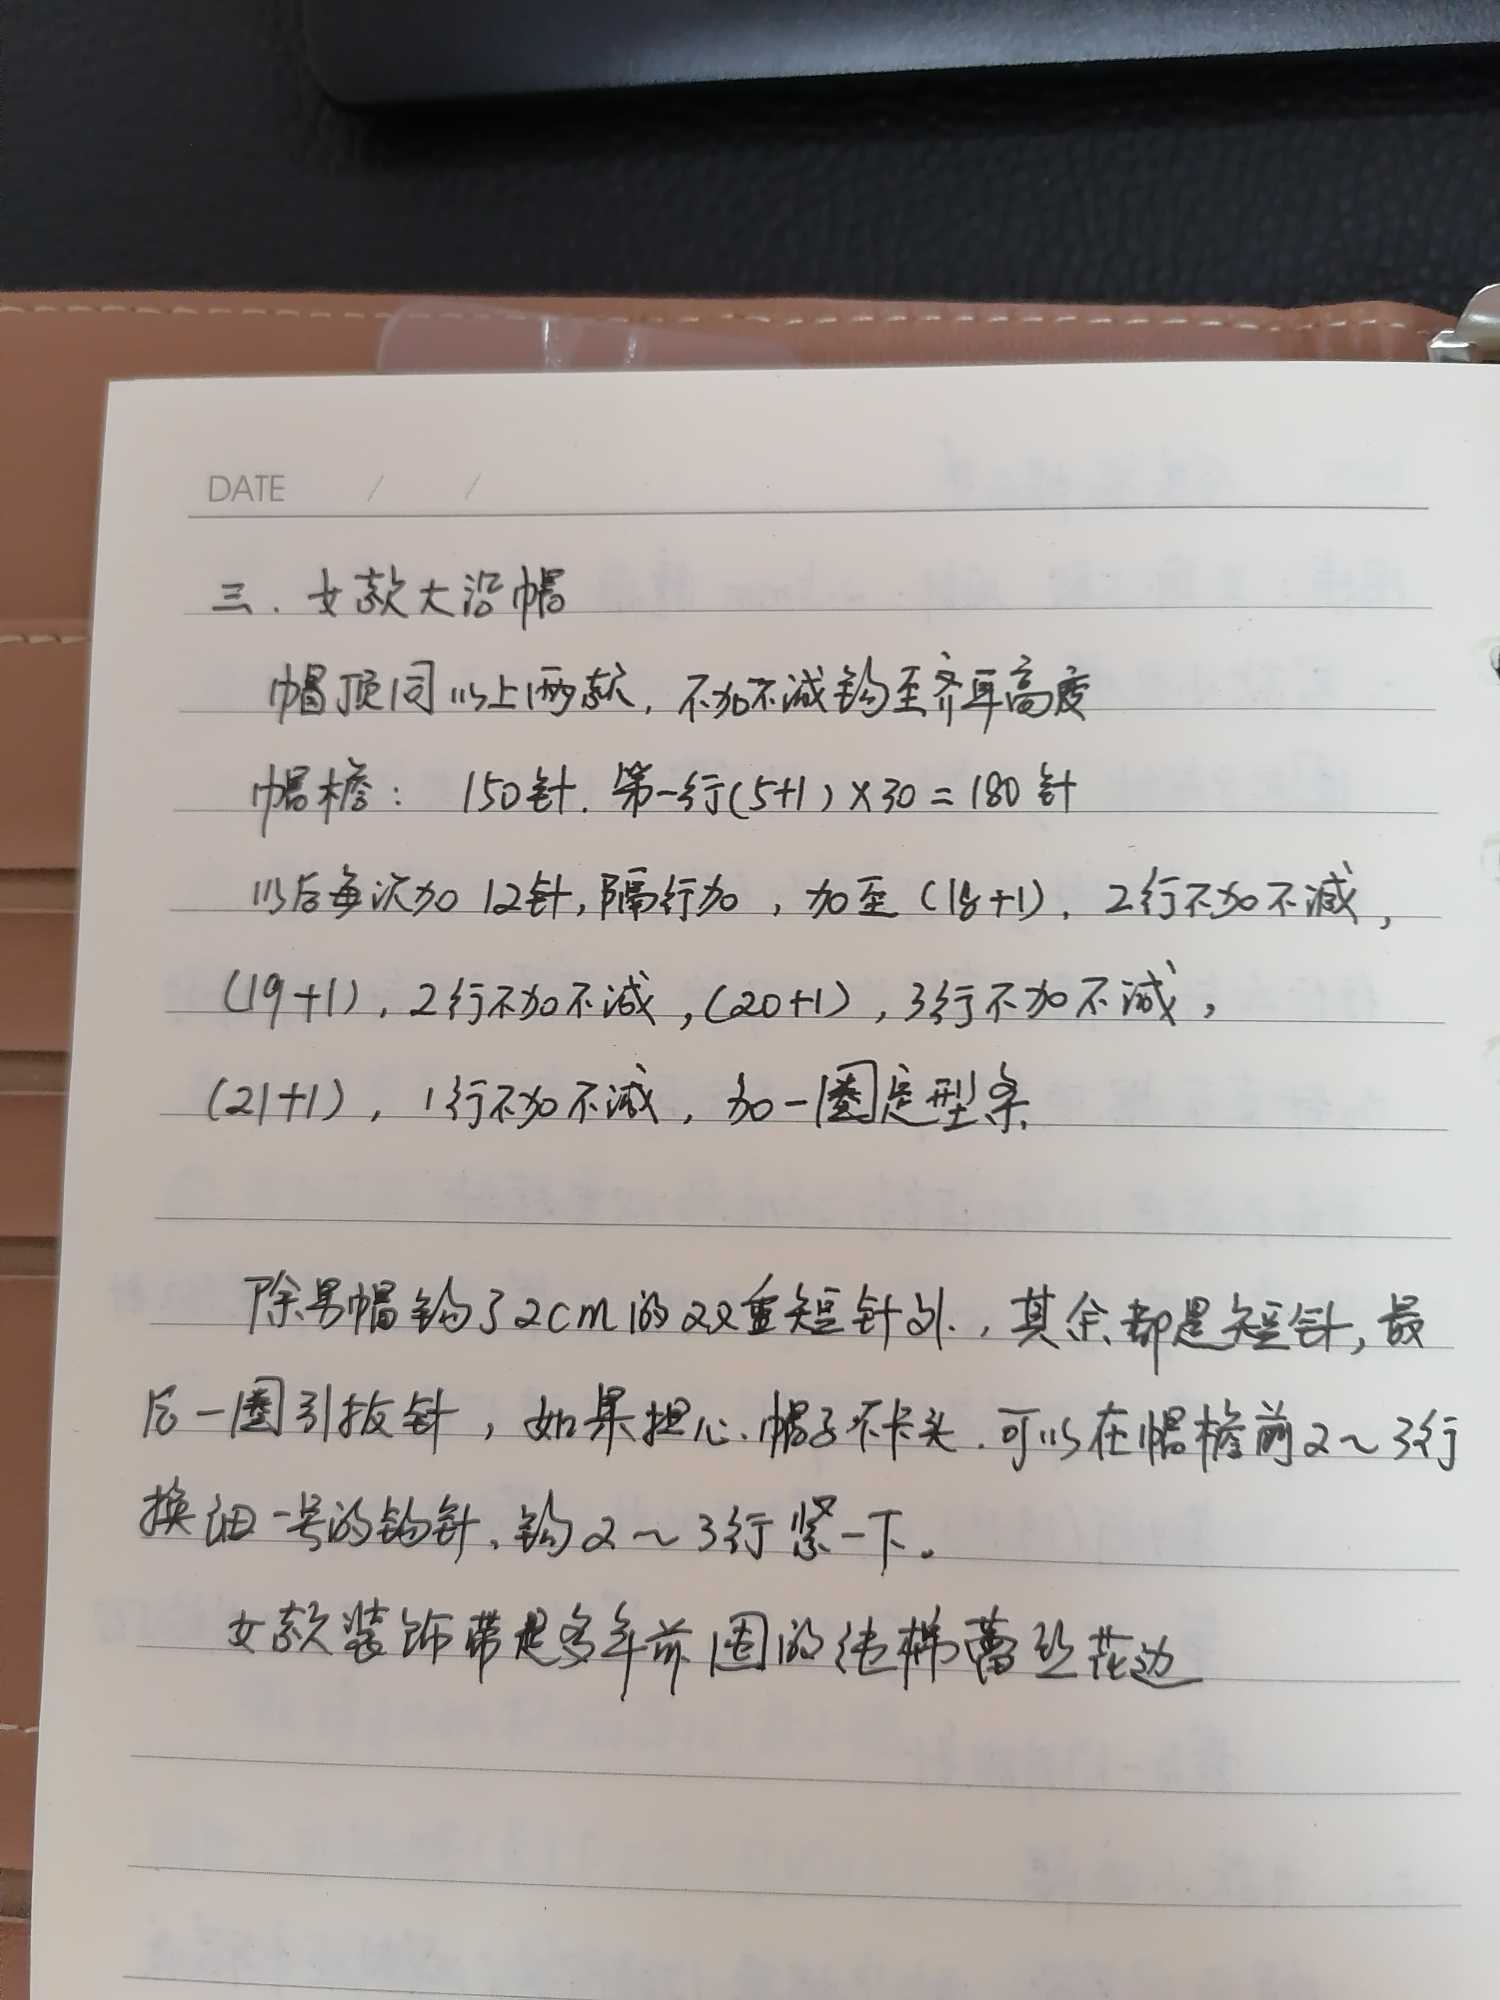 DATE / /
三. 女款大沿帽
帽顶同以上两款, 不加不减钩至齐耳高度
帽檐: 150针. 第一行(5+1)×30=180针
以后每次加12针, 隔行加, 加至(18+1), 2行不加不减,
(19+1), 2行不加不减, (20+1), 3行不加不减,
(21+1), 1行不加不减, 加一圈定型条.
除男帽钩了2cm的双重短针外, 其余都是短针, 最
后一圈引拔针, 如果担心帽子不卡头. 可以在帽檐前2~3行
换细一号的钩针, 钩2~3行紧一下。
女款装饰带是多年前囤的绝版蕾丝花边